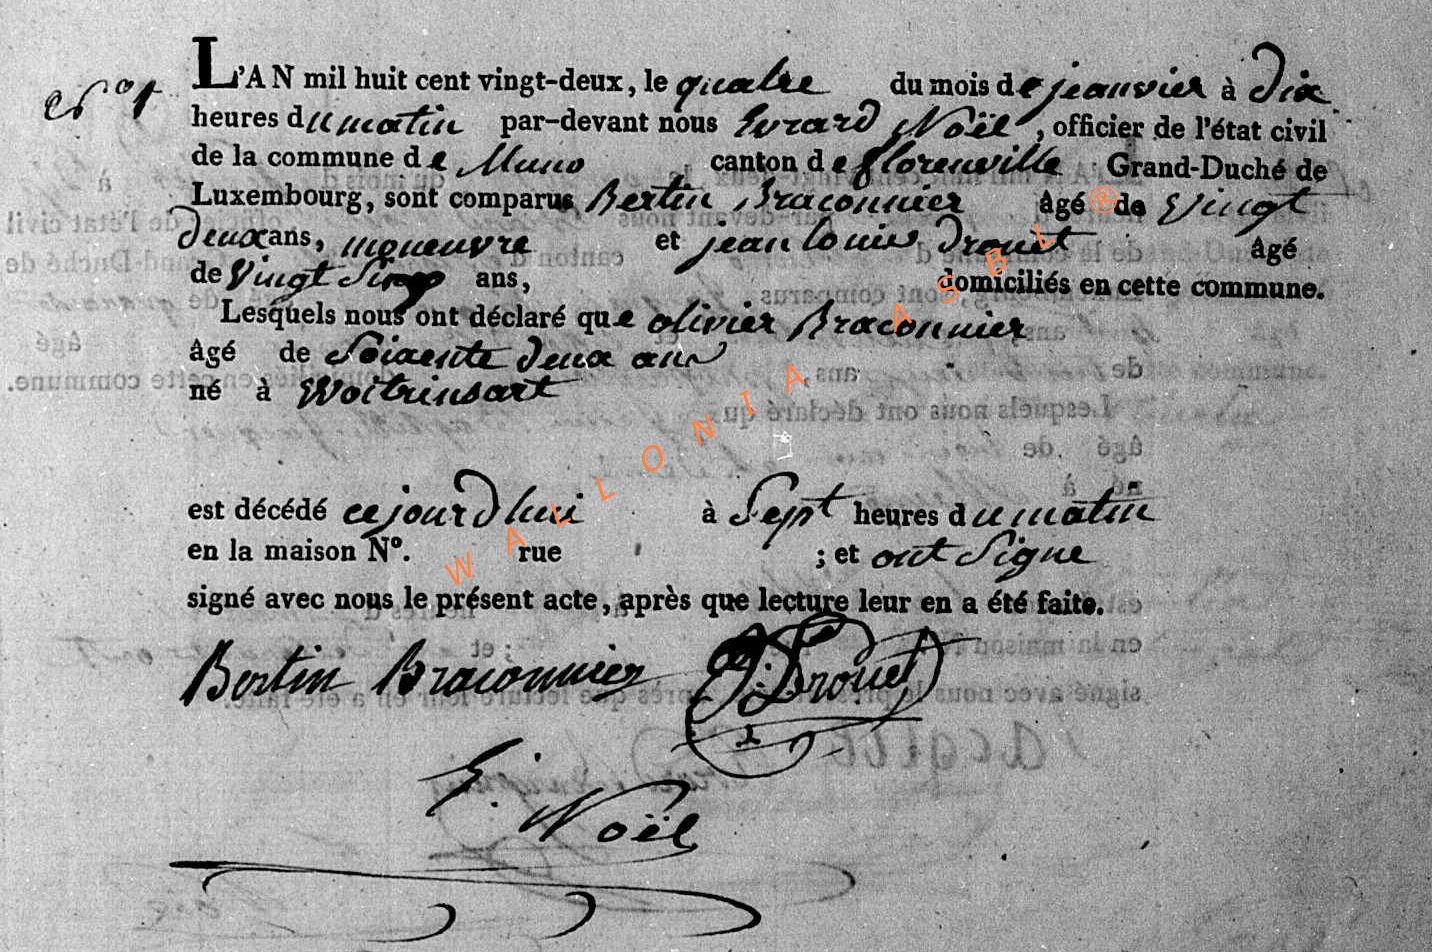 N° 1
L'AN mil huit cent vingt-deux, le quatre du mois de jeanvier à Dix
heures du matin par-devant nous Evrard Noël, officier de l'état civil
de la commune de Muno canton de florenville Grand-Duché de
Luxembourg, sont comparus Bertin Braconnier âgé de Vingt
deux ans, mgneuvre et jean louis Drouet âgé
de Vingt Sinq ans, domiciliés en cette commune.
Lesquels nous ont déclaré que olivier Braconnier
âgé de Soixente deux ans
né à Woitrinsart
est décédé cejourdhui à Sept heures du matin
en la maison N°. rue ; et ont Signe
signé avec nous le présent acte, après que lecture leur en a été faite.
Bertin Braconnier Drouet
E. Noël
WALLONIA ASBL ®